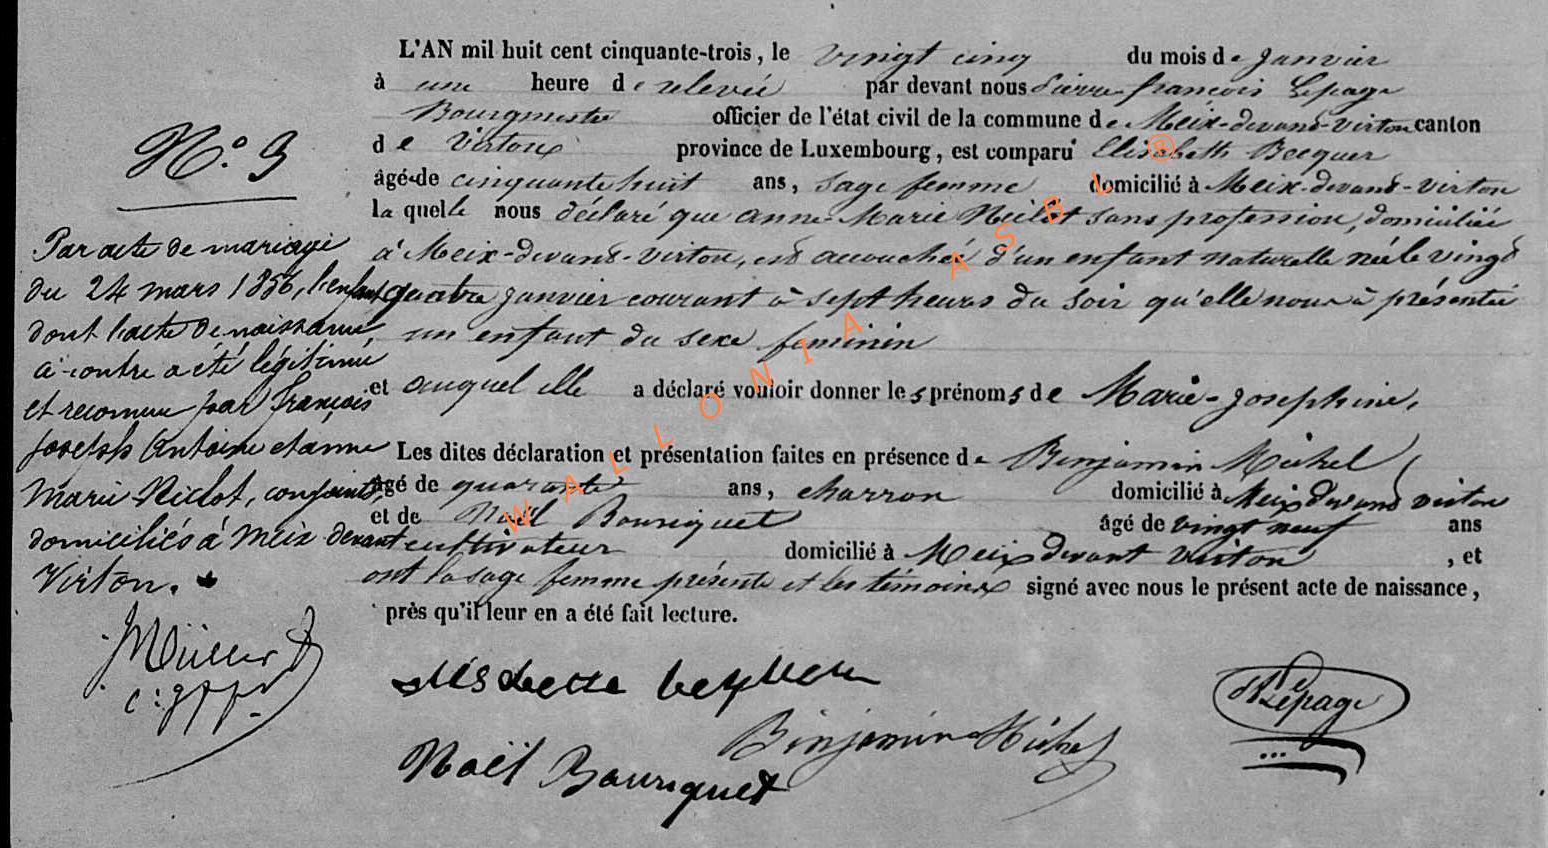 N.o 3
Par acte de mariage
du 24 mars 1856, l'enfant
dont l'acte de naissance,
ci-contre a été légitimé
et reconnu par françois
joseph Antoine et anne
Marie Niclot, conjoints,
domiciliés à Meix devant
Virton.
L'AN mil huit cent cinquante-trois, le vingt cinq du mois de Janvier
à une heure de relevée par devant nous Pierre françois Lepage
Bourgmestre officier de l'état civil de la commune de Meix-devant-virton canton
de Virton province de Luxembourg, est comparu Elisabeth Becquer
âgé de cinquante huit ans, sage femme domicilié à Meix-devant-virton
la quelle nous déclaré que anne-Marie Niclot sans profession, domiciliée
à Meix-devant-virton, est accouchée d'un enfant naturelle née le vingt
quatre janvier courant à sept heures du soir qu'elle nous à présentée
un enfant du sexe feminin
et auquel elle a déclaré vouloir donner les prénoms de Marie-Josephine,
Les dites déclaration et présentation faites en présence de Binjamin Michel
âgé de quarante ans, charron domicilié à Meix devant virton
et de Noël Bouriquet âgé de vingt neuf ans
cultivateur domicilié à Meix devant virton, et
ont la sage femme présente et les témoins signé avec nous le présent acte de naissance,
près qu'il leur en a été fait lecture.
Binjamin Michel
Lepage
Noël Bouriquet
WALLONIA ASBL ®